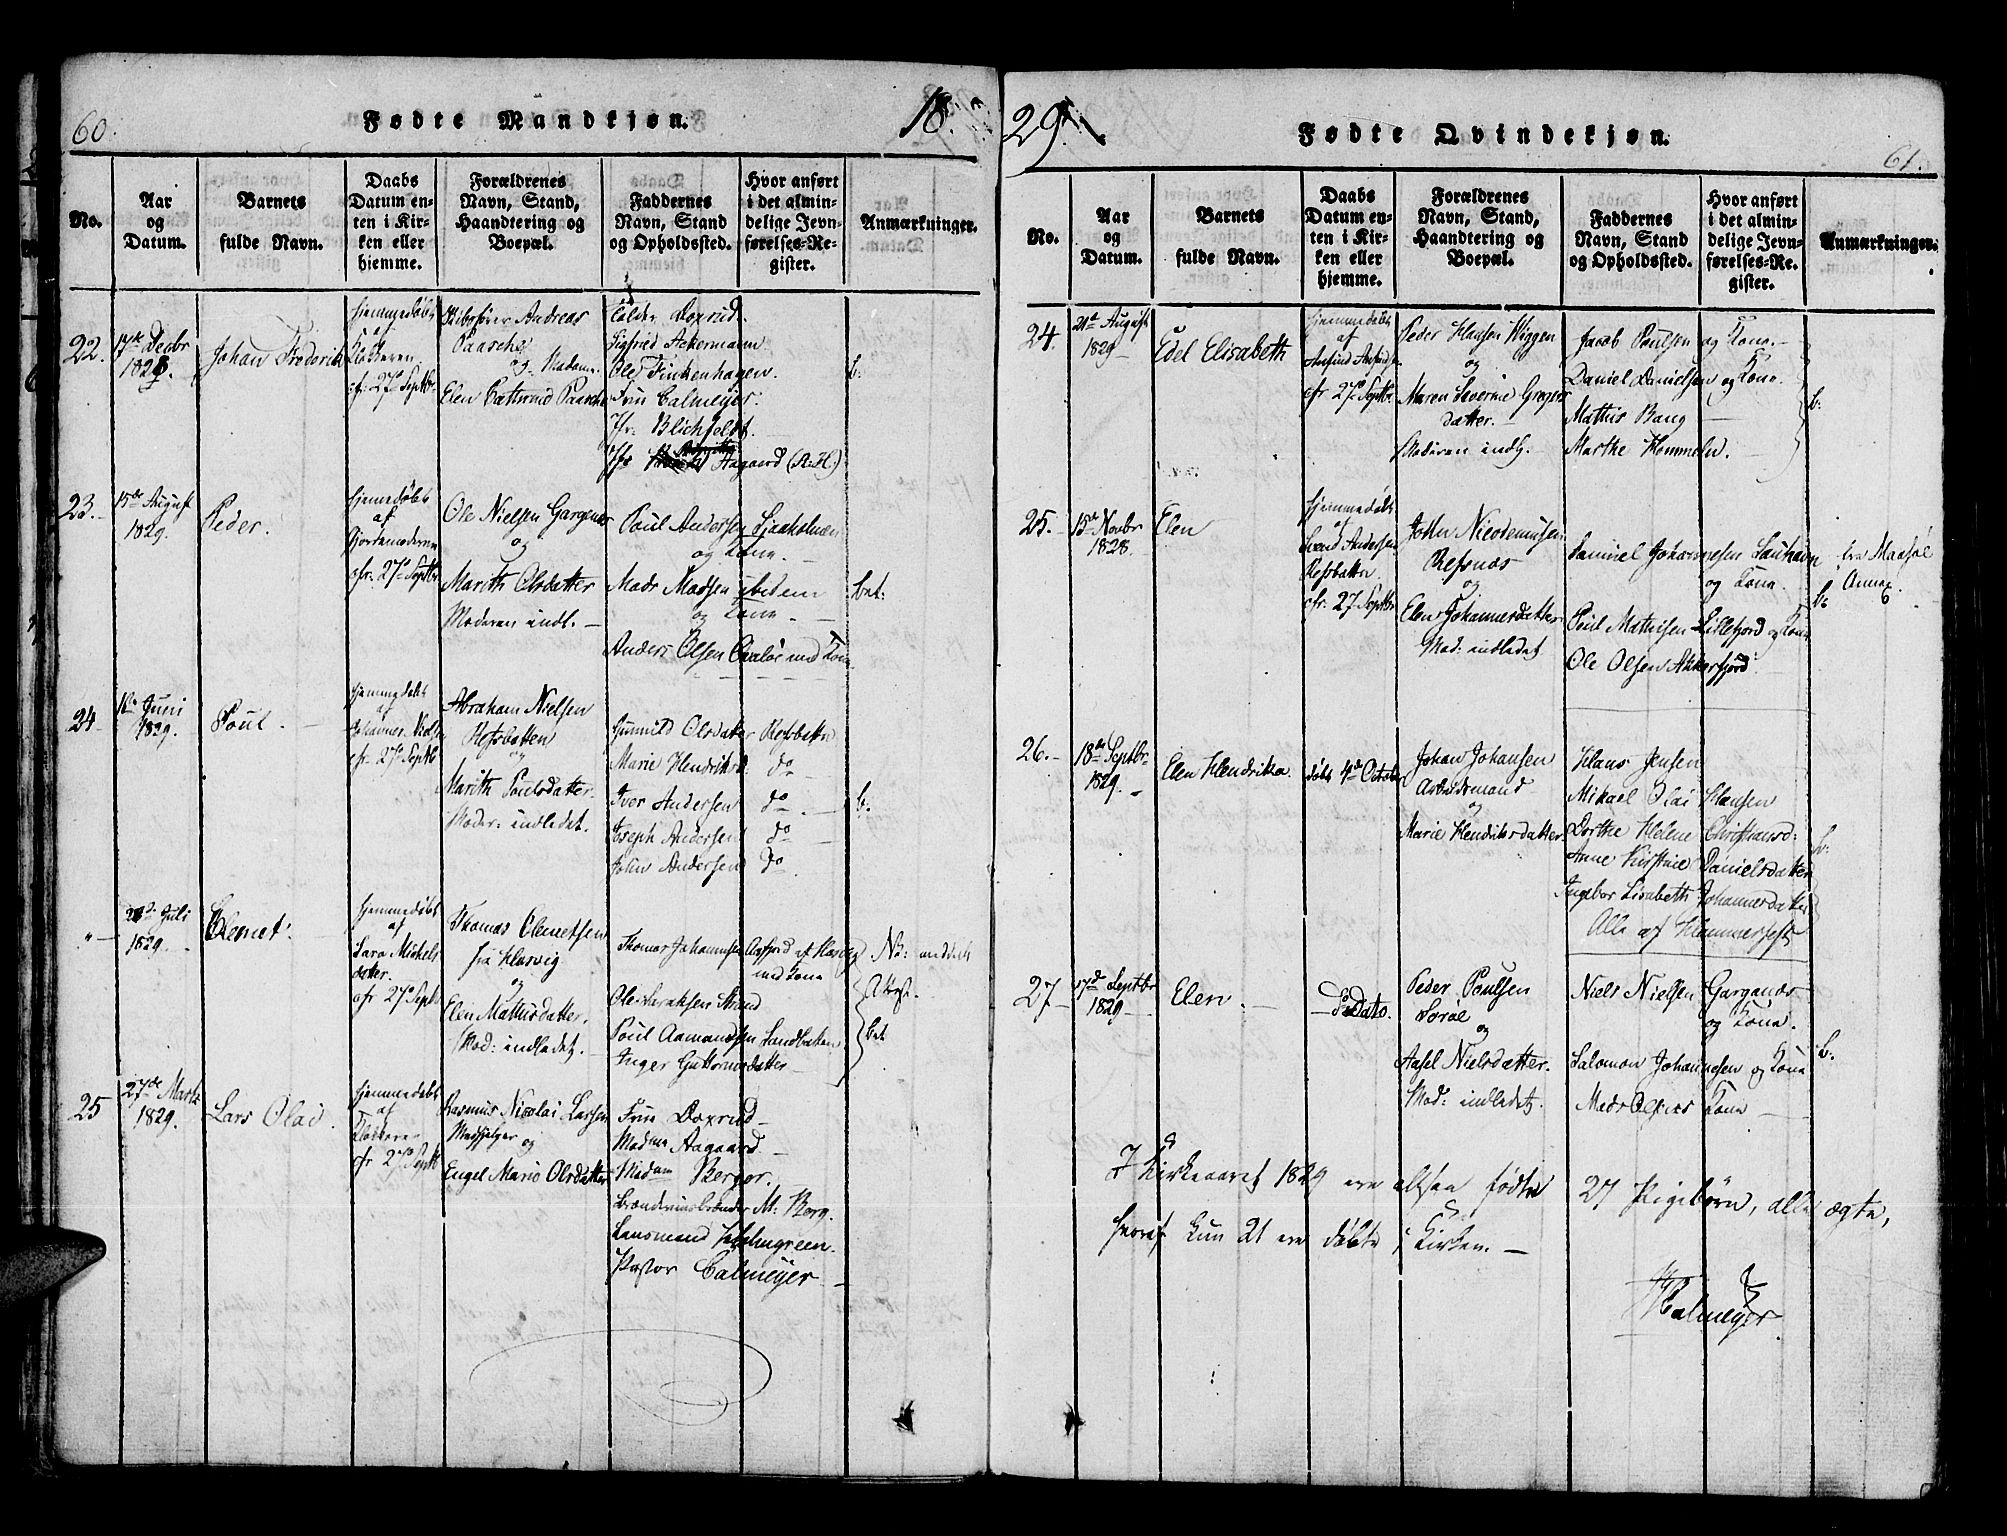 60.
Fødte Mandkjøn.
18
No.
Aar og Datum.
Barnets fulde Navn.
Daabs Datum enten i Kirken eller hjemme.
Forældrenes Navn, Stand, Haandtering og Boepæl.
Faddernes Navn, Stand og Opholdssted.
Hvor anført i det almindelige Jevnførelses-Register.
Anmærkninger.
22.
17de Decbr
1828.
Johan Frederik
hjemmedøbt
af
Klokkeren.
cfr. 27de Septbr
Andreas
Paasche
og Madame
Elen Paasche
Doxrud.
Sigfried Ackermann
Ole Finkenhagen.
Fru Calmeyer.
Jfr. Blichfeldt.
Jfr Aagaard (A:H)
b.
23.
15de August
1829.
Peder.
hjemmedøbt
af
Gjordemoderen
cfr. 27de Septbr
Ole Nielsen
og
Marith Olsdatter
Moderen indl. —
Poul Andersen
og Kone. —
Mads Madsen ibidem
og Kone. —
Anders Olsen med Kone
bet:
24
Juni
1829.
Poul. —
hjemmedøbt
af
Johannes Niels
cfr. 27de Septb
Abraham Nielsen
Refsbatten
og
Marith Poulsdatter.
Moder: indledet.
Gunnild Olsdatter Refsbattn
Marie Hendriksd. do
Iver Andersen do. —
Joseph Andersen do
John Andersen do.
b.
" —
Juli
1829.
Clemet.
hjemmedøbt
af
Sara Michels
datter.
cfr 27de Septb
Thomas Clemetsen
fra
og
Elen Mattisdatter.
Mod: indledet. —
Thomas Johannesen
med Kone
Strand
Poul Aamundsen
Inger Guttormsdatter
NB:
Attest.
bet
25
27de Marts
1829.
Lars Olai.
hjemmedøbt
af
Klokkeren
cfr 27de Septb
Rasmus Nicolai Larsen
og
Engel Marie Olsdatter
Fru Doxrud —
Madme Aagaard —
Madam Berger. —
M: Berg.
Lensmand Holmgreen.
Pastor Calmeyer —
29.
Fødte Qvindekjøn.
61.
No.
Aar og Datum.
Barnets fulde Navn.
Daabs Datum enten i Kirken eller hjemme.
Forældrenes Navn, Stand, Haandtering og Boepæl.
Faddernes Navn, Stand og Opholdssted.
Hvor anført i det almindelige Jevnførelses-Register.
Anmærkninger.
24.
21de August
1829 —
Edel Elisabeth
hjemmedøbt
af
cfr 27de Septbr
Peder Hansen Wiggen
og
Maren Severine Gregers
datter. —
Moderen indl.
Jacob Poulsen og Kone. —
Daniel Danielsen og Kone.
Mathis Bang —
Marthe Hommeln. —
b.
25. —
15de Novbr
1828.
Elen
hjemmedøbt
af
Svend Andersen
Refsbatten.
cfr. 27 Septbr
John Nicodemusen
Refsnæs
og
Elen Johannesdatter
Mod: indledet
Samuel Johannesen
og Kone.
Poul Mathisen Lillefjord og Kone
Ole Olsen Akkarfjord
b.
fra Maasøe
Annex.
26. —
18de Septbr
1829. —
Elen Hendrikka.
døbt 4de October
Johan Johansen
Arbeidsmand
og
Marie Hendriksdatter
Hans Jensen
Mikael Olai Hansen
Dorthe Helene Christiansd:
Anne Kirstine Danielsdatter
Ingebor Lisabeth Johannesdatter
Alle af Hammerfest
b.
27 —
17de Septbr
1829 —
Elen. —
Dato.
Peder Poulsen
Sørøe
og
Aasel Nielsdatter.
Mod: indledet.
Niels Nielsen
og Kone.
Salomon Johannesen og Kone
Mads Olsens Kone —
b.
I Kirkeaaret 1829 ere altsaa fødte 27 Pigebørn, alle ægte,
hvoraf kun 21 ere døbte i Kirken. —
Calmeyer